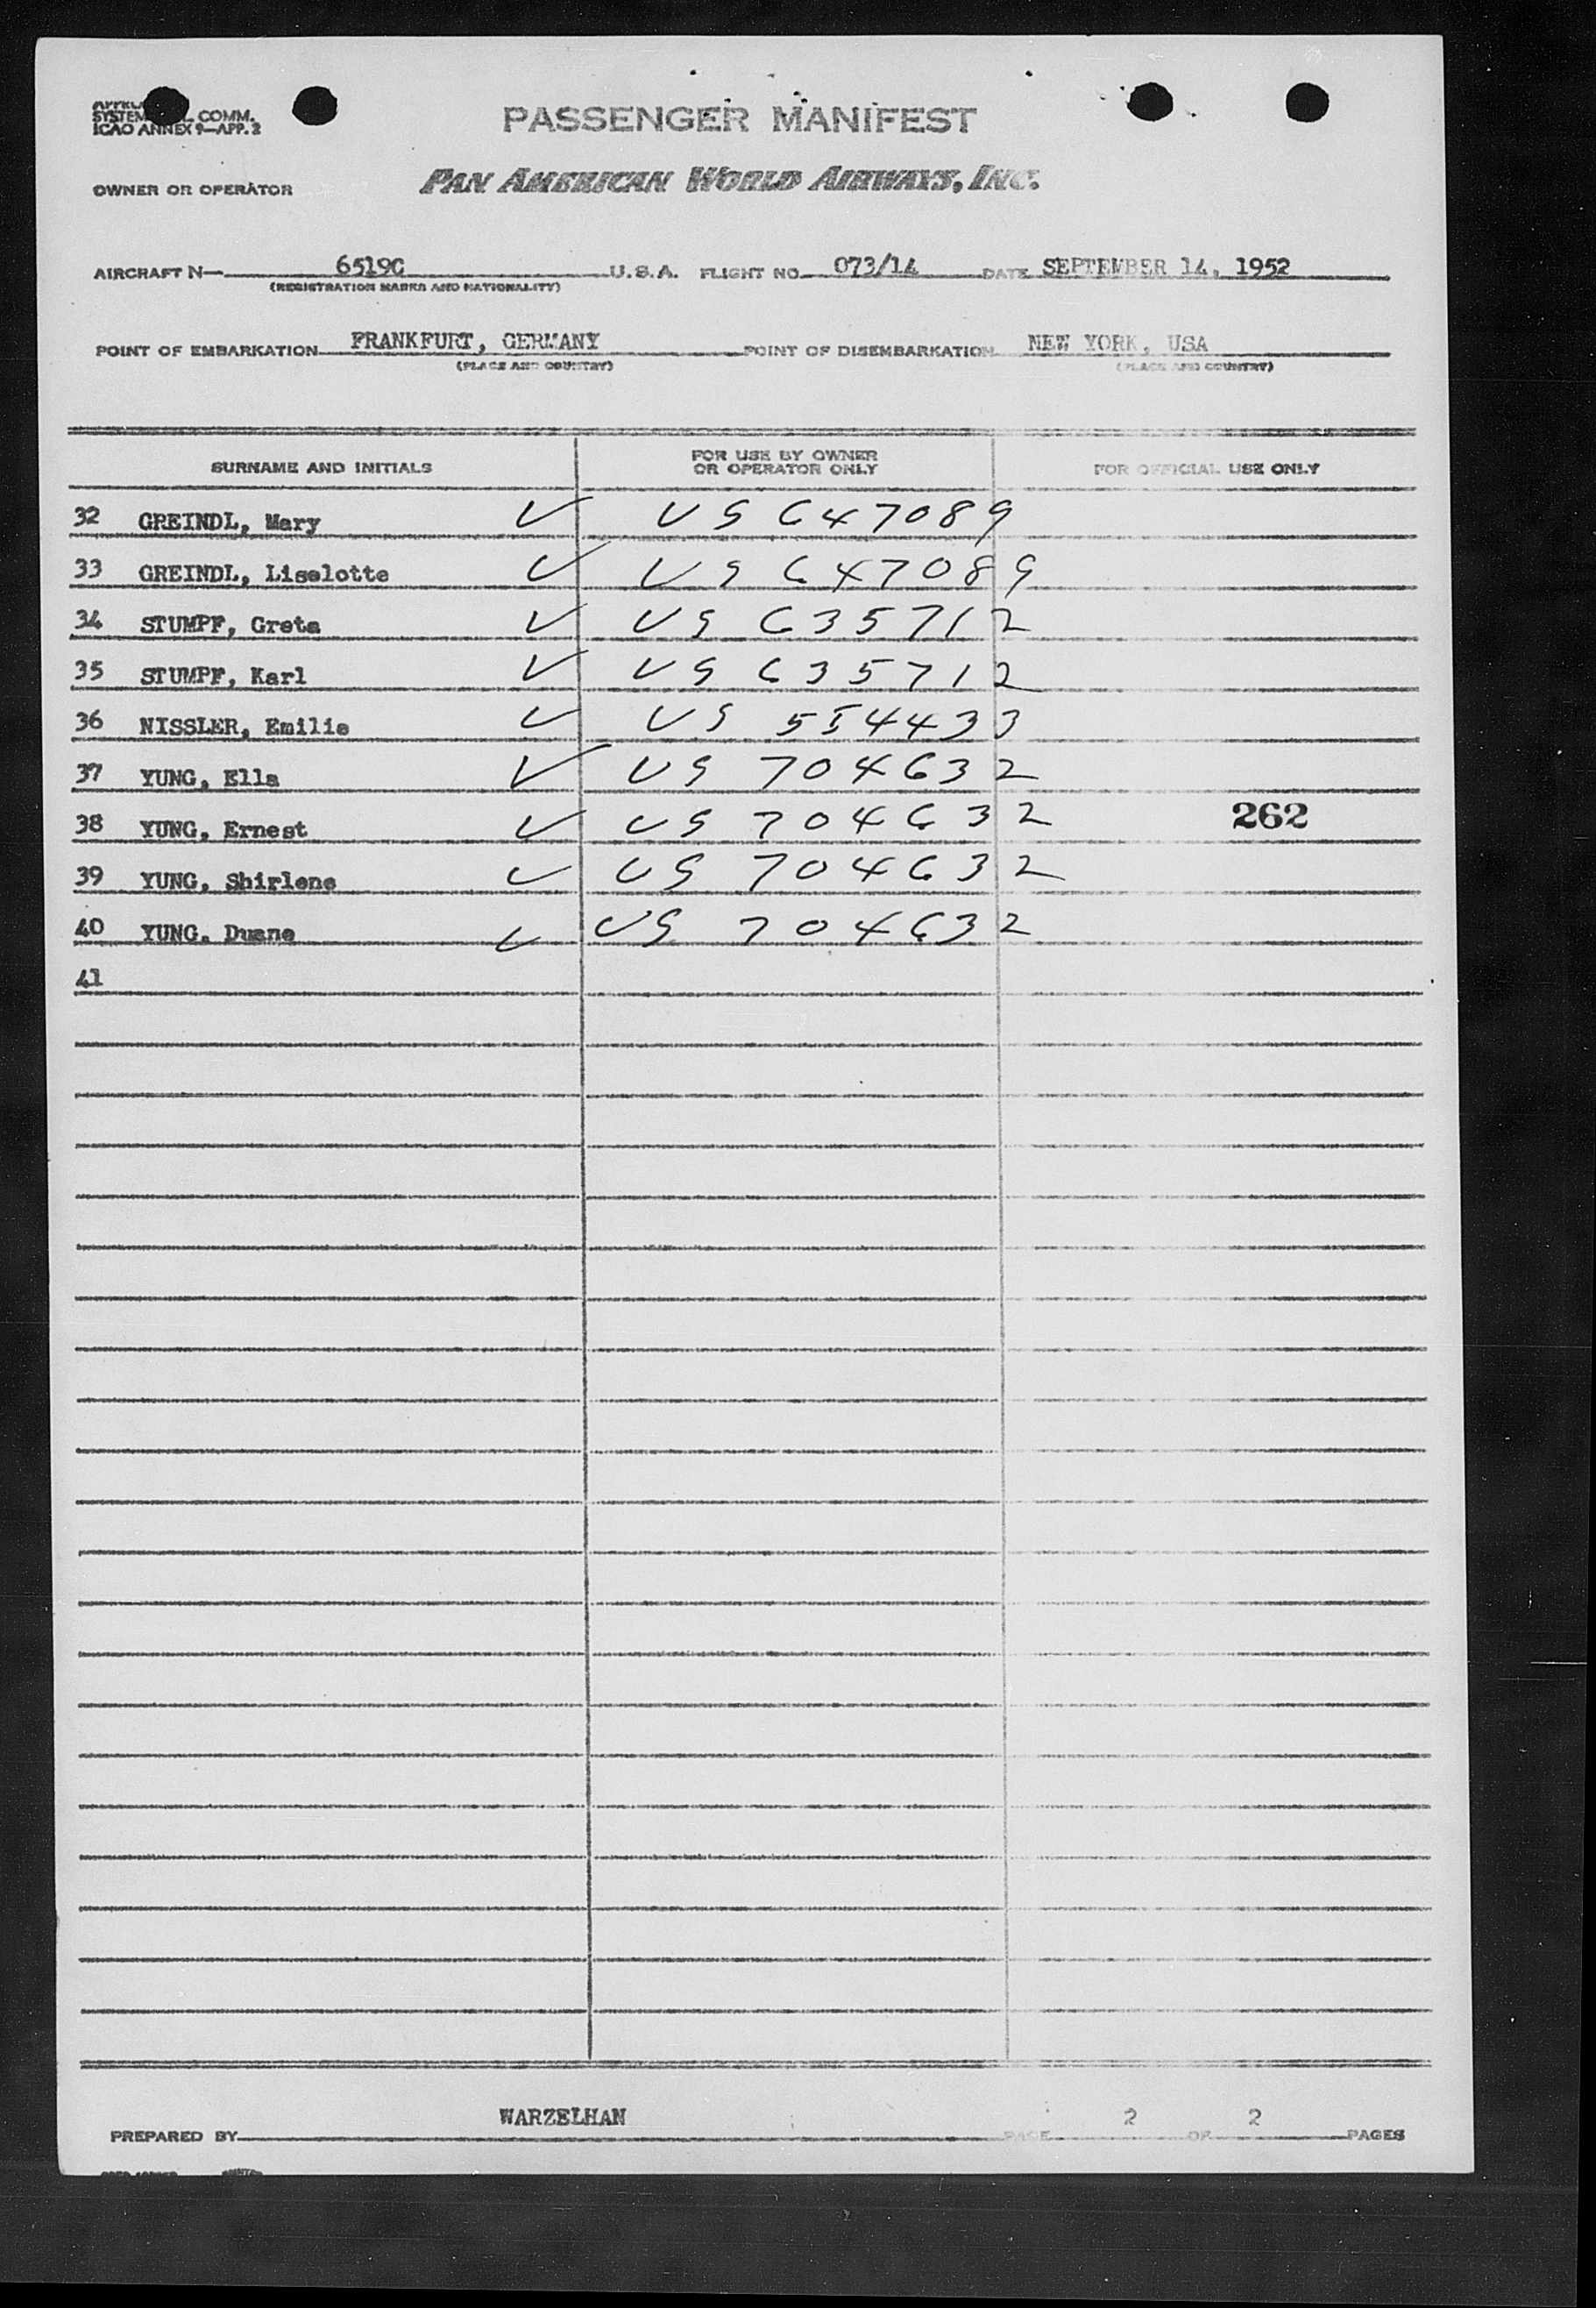 SYSTEM COMM.
ICAO ANNEX 9—APP. 2
PASSENGER MANIFEST
OWNER OR OPERATOR PAN AMERICAN WORLD AIRWAYS, INC.
AIRCRAFT N— 6519C U.S.A. FLIGHT NO. 073/14 DATE SEPTEMBER 14, 1952
(REGISTRATION MARKS AND NATIONALITY)
POINT OF EMBARKATION FRANKFURT, GERMANY POINT OF DISEMBARKATION NEW YORK, USA
(PLACE AND COUNTRY) (PLACE AND COUNTRY)
SURNAME AND INITIALS FOR USE BY OWNER OR OPERATOR ONLY FOR OFFICIAL USE ONLY
32 GREINDL, Mary ✓ US 647089
33 GREINDL, Liselotte ✓ US 647089
34 STUMPF, Greta ✓ US 635712
35 STUMPF, Karl ✓ US 635712
36 NISSLER, Emilie ✓ US 554433
37 YUNG, Ella ✓ US 704632
38 YUNG, Ernest ✓ US 704632 262
39 YUNG, Shirlene ✓ US 704632
40 YUNG. Duane ✓ US 704632
41
WARZELHAN
PREPARED BY PAGE 2 OF 2 PAGES